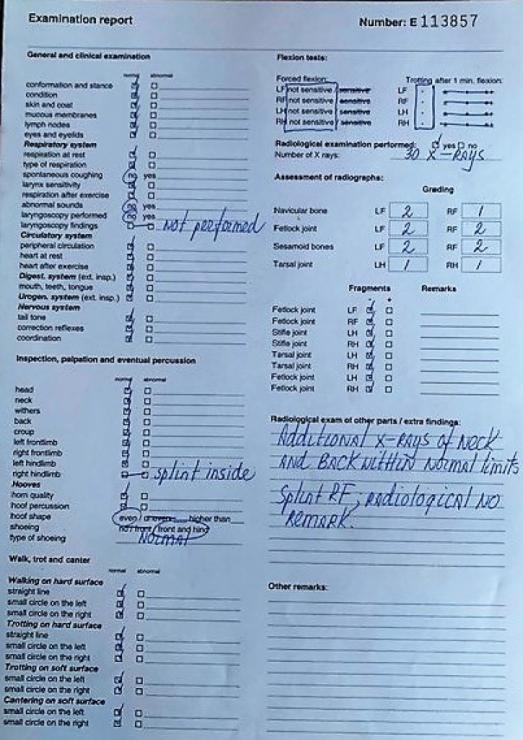 Examination report
Number: E 113857
General and clinical examination
normal abnormal
conformation and stance
condition
skin and coat
mucous membranes
lymph nodes
eyes and eyelids
Respiratory system
respiration at rest
type of respiration
spontaneous coughing no yes
larynx sensitivity
respiration after exercise
abnormal sounds no yes
laryngoscopy performed no yes
laryngoscopy findings Not performed
Circulatory system
peripheral circulation
heart at rest
heart after exercise
Digest. system (ext. insp.)
mouth, teeth, tongue
Urogen. system (ext. insp.)
Nervous system
tail tone
correction reflexes
coordination
Inspection, palpation and eventual percussion
normal abnormal
head
neck
withers
back
croup
left frontlimb
right frontlimb
left hindlimb
right hindlimb splint inside
Hooves
horn quality
hoof percussion
hoof shape even / uneven higher than
shoeing no / front / front and hind
type of shoeing Normal
Walk, trot and canter
normal abnormal
Walking on hard surface
straight line
small circle on the left
small circle on the right
Trotting on hard surface
straight line
small circle on the left
small circle on the right
Trotting on soft surface
small circle on the left
small circle on the right
Cantering on soft surface
small circle on the left
small circle on the right
Flexion tests:
Forced flexion: Trotting after 1 min. flexion:
LF not sensitive / sensitive LF
RF not sensitive / sensitive RF
LH not sensitive / sensitive LH
RH not sensitive / sensitive RH
Radiological examination performed: yes no
Number of X rays: 30 X-RAYS
Assessment of radiographs:
Grading
Navicular bone LF 2 RF 1
Fetlock joint LF 2 RF 2
Sesamoid bones LF 2 RF 2
Tarsal joint LH 1 RH 1
Fragments Remarks
- +
Fetlock joint LF
Fetlock joint RF
Stifle joint LH
Stifle joint RH
Tarsal joint LH
Tarsal joint RH
Fetlock joint LH
Fetlock joint RH
Radiological exam of other parts / extra findings:
ADDITIONAL X-RAYS OF NECK
AND BACK WITHIN NORMAL limits
Splint RF; RADIOLOGICAL NO
REMARK.
Other remarks: